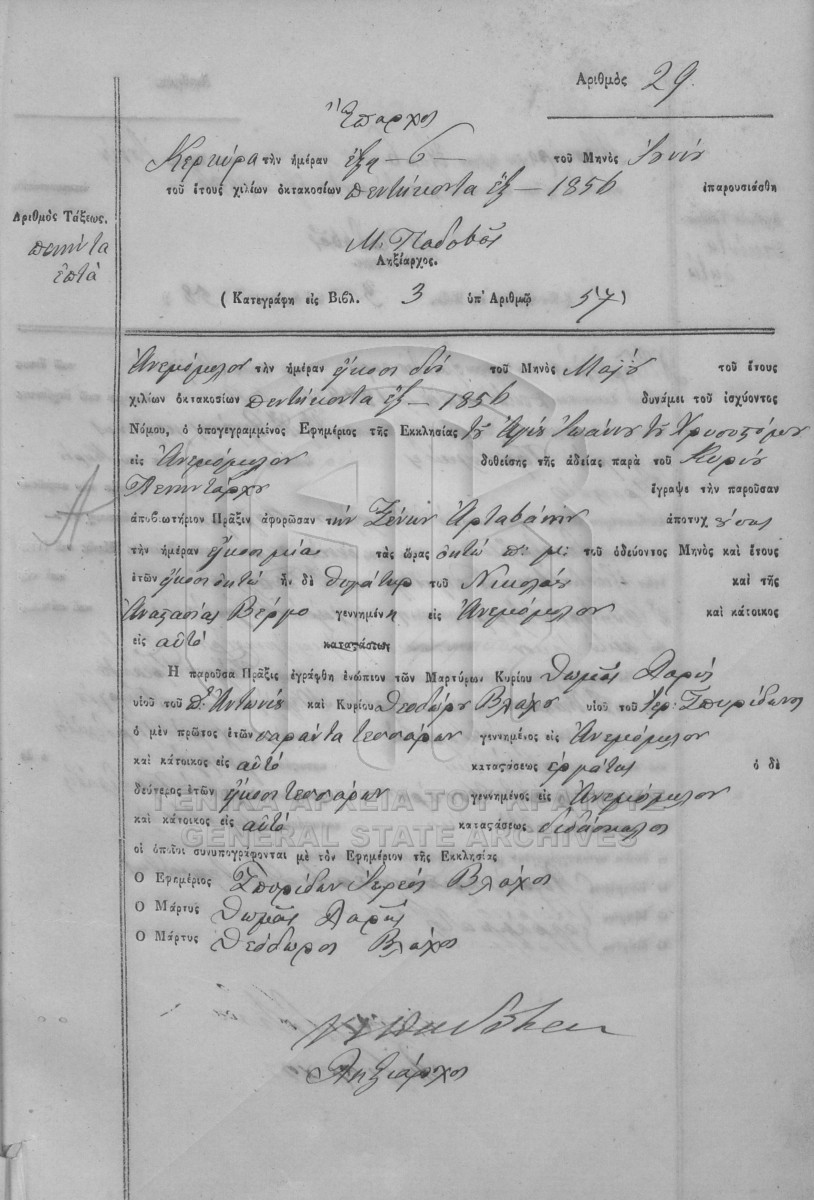 Ἀριθμὸς 29.
Ἔπαρχος
Κερκύρα τὴν ἡμέραν ἕξη — 6 — τοῦ Μηνὸς Ἰουνίου
τοῦ ἔτους χιλίων ὀκτακοσίων πεντήκοντα ἓξ — 1856 ἐπαρουσιάσθη
Ἀριθμὸς Τάξεως.
πενήντα
ἑπτὰ
Μ. Παδοβᾶς
Ληξίαρχος.
( Κατεγράφη εἰς Βιβλ. 3 ὑπ' Ἀριθμῷ 57 )
Ἀνεμόμυλον τὴν ἡμέραν εἴκοσι δύο τοῦ Μηνὸς Μαΐου τοῦ ἔτους
χιλίων ὀκτακοσίων πεντήκοντα ἓξ — 1856 δυνάμει τοῦ ἰσχύοντος
Νόμου, ὁ ὑπογεγραμμένος Ἐφημέριος τῆς Ἐκκλησίας τοῦ Ἁγίου Ἰωάννου τοῦ Χρυσοστόμου
εἰς Ἀνεμόμυλον δοθείσης τῆς ἀδείας παρὰ τοῦ Κυρίου
ἔγραψε τὴν παροῦσαν
ἀποβιωτήριον Πρᾶξιν ἀφορῶσαν τὴν Ξένην Ἀρταβάνην ἀποτυχοῦσας
τὴν ἡμέραν εἴκοσι μίας τὰς ὥρας ὀκτὼ π: μ: τοῦ ὁδεύοντος Μηνὸς καὶ ἔτους
ἐτῶν εἴκοσι ὀκτὼ ἡ δὲ θυγάτηρ τοῦ Νικολάου καὶ τῆς
Ἀναστασίας Βέργο γεννημένη εἰς Ἀνεμόμυλον καὶ κάτοικος
εἰς αὐτό καταστάσεως
Ἡ παροῦσα Πρᾶξις ἐγράφθη ἐνώπιον τῶν Μαρτύρων Κυρίου Θωμᾶς
υἱοῦ τοῦ π. Ἀντωνίου καὶ Κυρίου Θεοδώρου Βλάχο υἱοῦ τοῦ Ἱερ: Σπυρίδωνος
ὁ μὲν πρῶτος ἐτῶν σαράντα τεσσάρων γεννημένος εἰς Ἀνεμόμυλον
καὶ κάτοικος εἰς αὐτό καταστάσεως ἐργάτης ὁ δὲ
δεύτερος ἐτῶν εἴκοσι τεσσάρων γεννημένος εἰς Ἀνεμόμυλον
καὶ κάτοικος εἰς αὐτό καταστάσεως διδάσκαλος
οἱ ὁποῖοι συνυπογράφονται μὲ τὸν Ἐφημέριον τῆς Ἐκκλησίας
Ὁ Ἐφημέριος Σπυρίδων Ἱερεὺς Βλάχος
Ὁ Μάρτυς Θωμᾶς
Ὁ Μάρτυς Θεόδωρος Βλάχος
Ληξίαρχος
ΓΕΝΙΚΑ ΑΡΧΕΙΑ ΤΟΥ ΚΡΑΤΟΥΣ
GENERAL STATE ARCHIVES